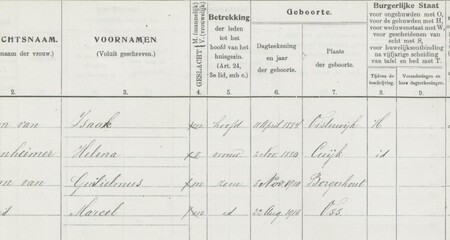 CHTSNAAM.
naam der vrouw.)
VOORNAMEN
(Voluit geschreven.)
GESLACHT
M. (mannelijk)
V. (vrouwelijk)
Betrekking
der leden tot
het hoofd van het
huisgezin.
(Art. 24,
5e lid, sub c.)
Geboorte.
Dagteekening
en jaar
der geboorte.
Plaats
der geboorte.
Burgerlijke Staat
voor ongehuwden met O,
voor gehuwden met H,
voor weduwenstaat met W,
voor gescheidenen van
echt met S,
voor huwelijksontbinding
na vijfjarige scheiding
van tafel en bed met T.
Tijdens de
inschrijving.
Veranderingen en
hare dagteekeningen.
2. 3. 4. 5. 6. 7. 8. 9.
n van Izaak m hoofd April Oisterwijk H
nheimer Helena v vrouw 2 Nov. Cuijk id
n van m zoon Nov. 1910 Borgerhout
d Marcel m id 22 Aug. 1916 Oss.